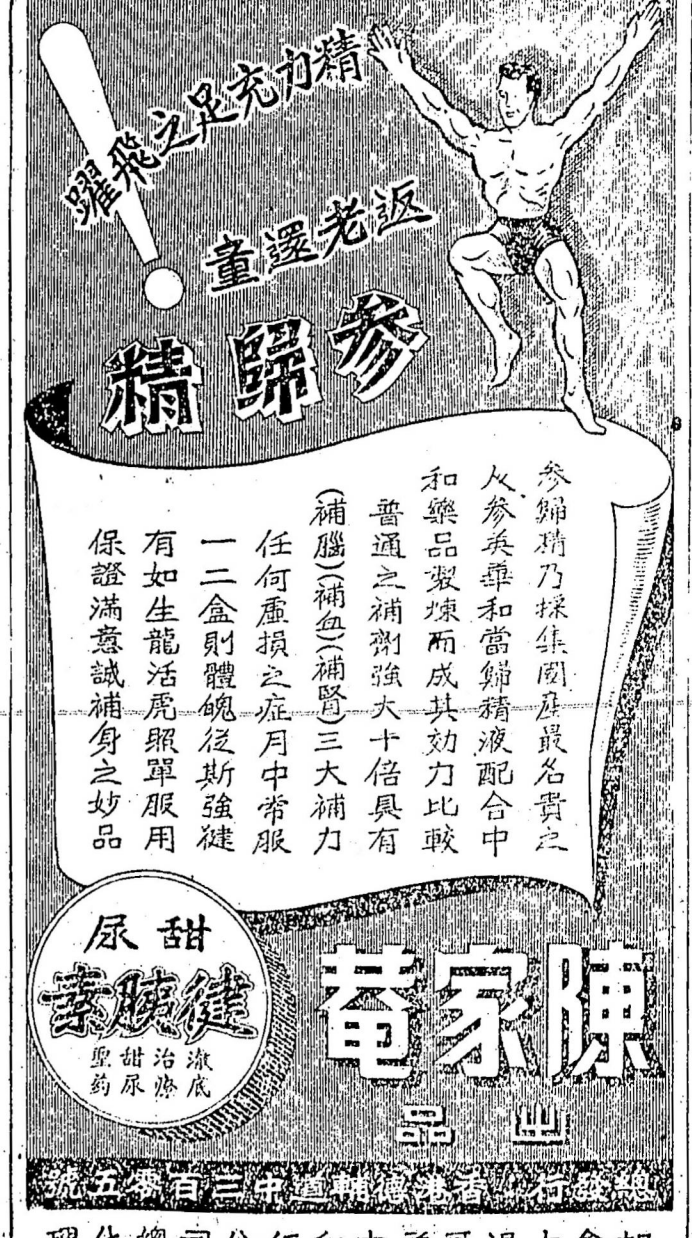 精力充足之飛躍
返老還童
參歸精
參歸精乃採集國産最名貴之
人參英華和當歸精液配合中
和藥品製煉而成其効力比較
普通之補劑強大十倍具有
(補腦)(補血)(補腎)三大補力
任何虛損之症月中常服
一二盒則體魄從斯強健
有如生龍活虎照單服用
保證滿意誠補身之妙品
甜尿
健胰素
澈底
治療
甜尿
聖葯
陳家菴
出品
總發行 香港德輔道中三百零五號